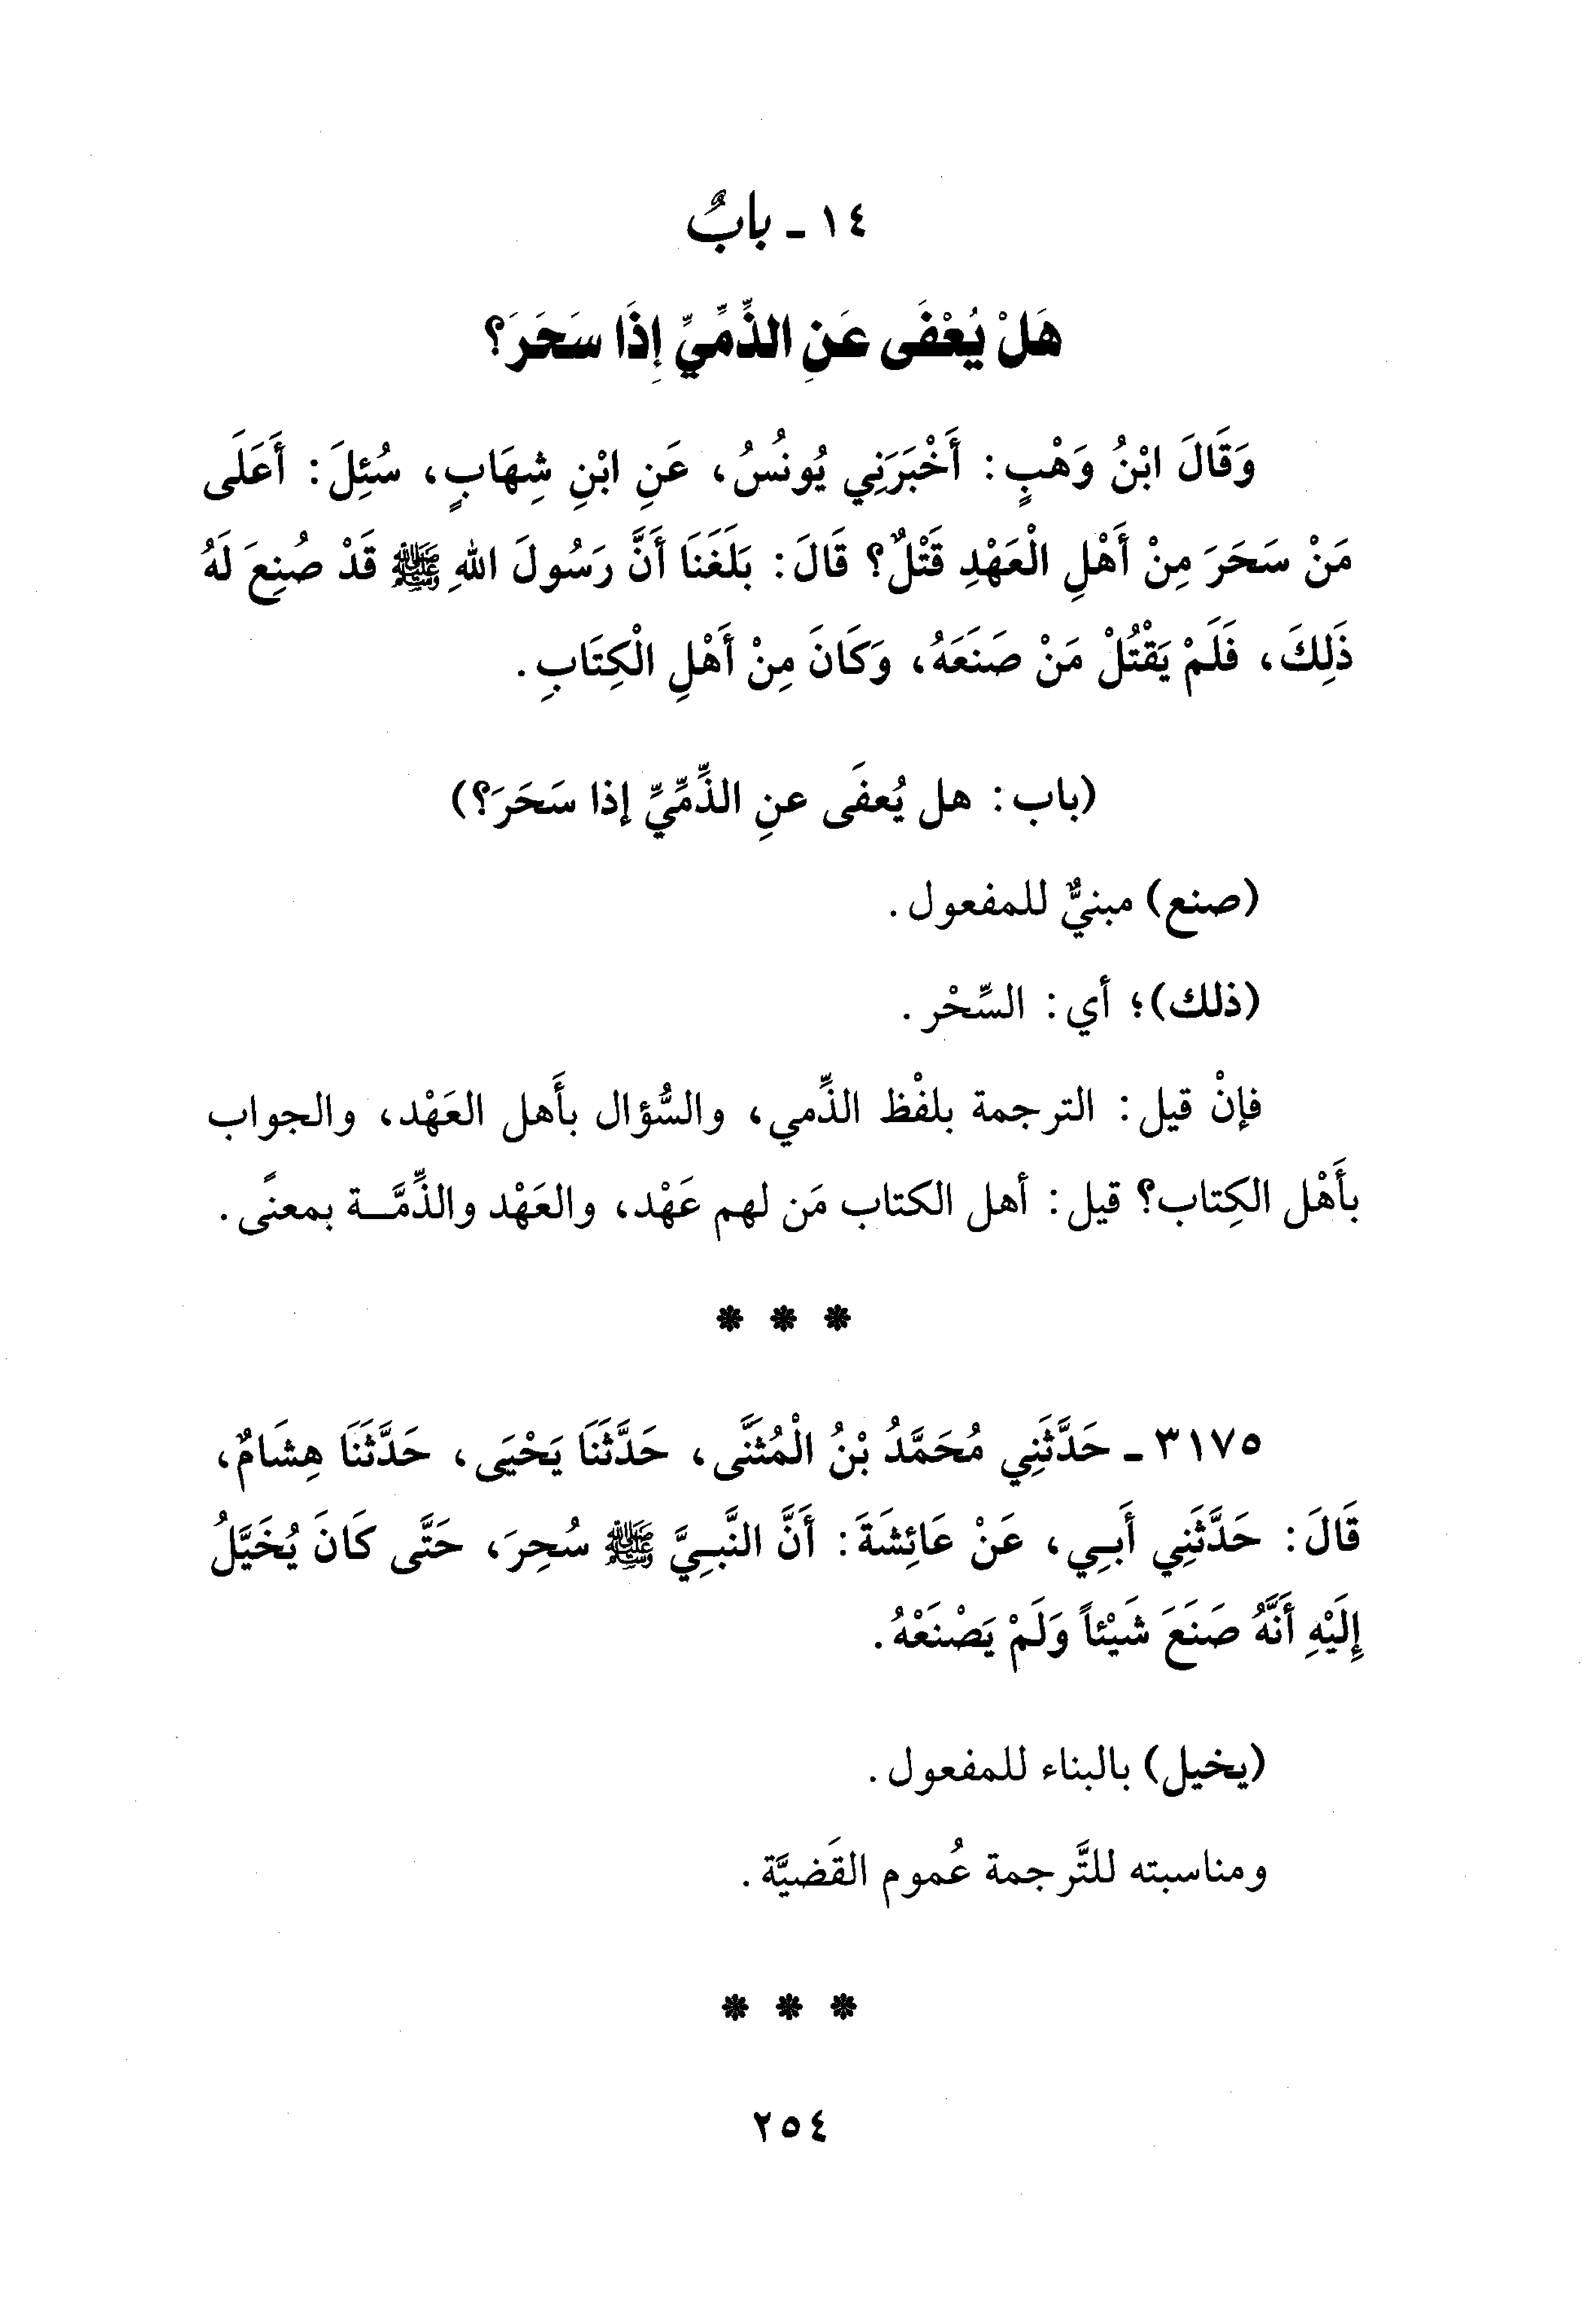 ١٤ ـ بابٌ
هَلْ يُعْفَى عَنِ الذِّمِّيِّ إِذَا سَحَرَ؟
وَقَالَ ابْنُ وَهْبٍ: أَخْبَرَنِي يُونُسُ، عَنِ ابْنِ شِهَابٍ، سُئِلَ: أَعَلَى
مَنْ سَحَرَ مِنْ أَهْلِ الْعَهْدِ قَتْلٌ؟ قَالَ: بَلَغَنَا أَنَّ رَسُولَ اللهِ ﷺ قَدْ صُنِعَ لَهُ
ذَلِكَ، فَلَمْ يَقْتُلْ مَنْ صَنَعَهُ، وَكَانَ مِنْ أَهْلِ الْكِتَابِ.
(باب: هل يُعفَى عنِ الذِّمِّيِّ إذا سَحَرَ؟)
(صنع) مبنيٌّ للمفعول.
(ذلك)؛ أي: السِّحْر.
فإنْ قيل: الترجمة بلفْظ الذِّمي، والسُّؤال بأَهل العَهْد، والجواب
بأَهْل الكِتاب؟ قيل: أهل الكتاب مَن لهم عَهْد، والعَهْد والذِّمَّـة بمعنًى.
* * *
٣١٧٥ ـ حَدَّثَنِي مُحَمَّدُ بْنُ الْمُثَنَّى، حَدَّثَنَا يَحْيَى، حَدَّثَنَا هِشَامٌ،
قَالَ: حَدَّثَنِي أَبِي، عَنْ عَائِشَةَ: أَنَّ النَّبِيَّ ﷺ سُحِرَ، حَتَّى كَانَ يُخَيَّلُ
إِلَيْهِ أَنَّهُ صَنَعَ شَيْئاً وَلَمْ يَصْنَعْهُ.
(يخيل) بالبناء للمفعول.
ومناسبته للتَّرجمة عُموم القَضيَّة.
* * *
٢٥٤